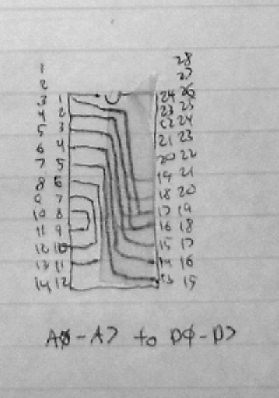 1 28
2 27
3 1 24 26
4 2 23 25
5 3 22 24
6 4 21 23
7 5 20 22
8 6 19 21
9 7 18 20
10 8 17 19
11 9 16 18
12 10 15 17
13 11 14 16
14 12 13 15
AØ-A7 to DØ-D7